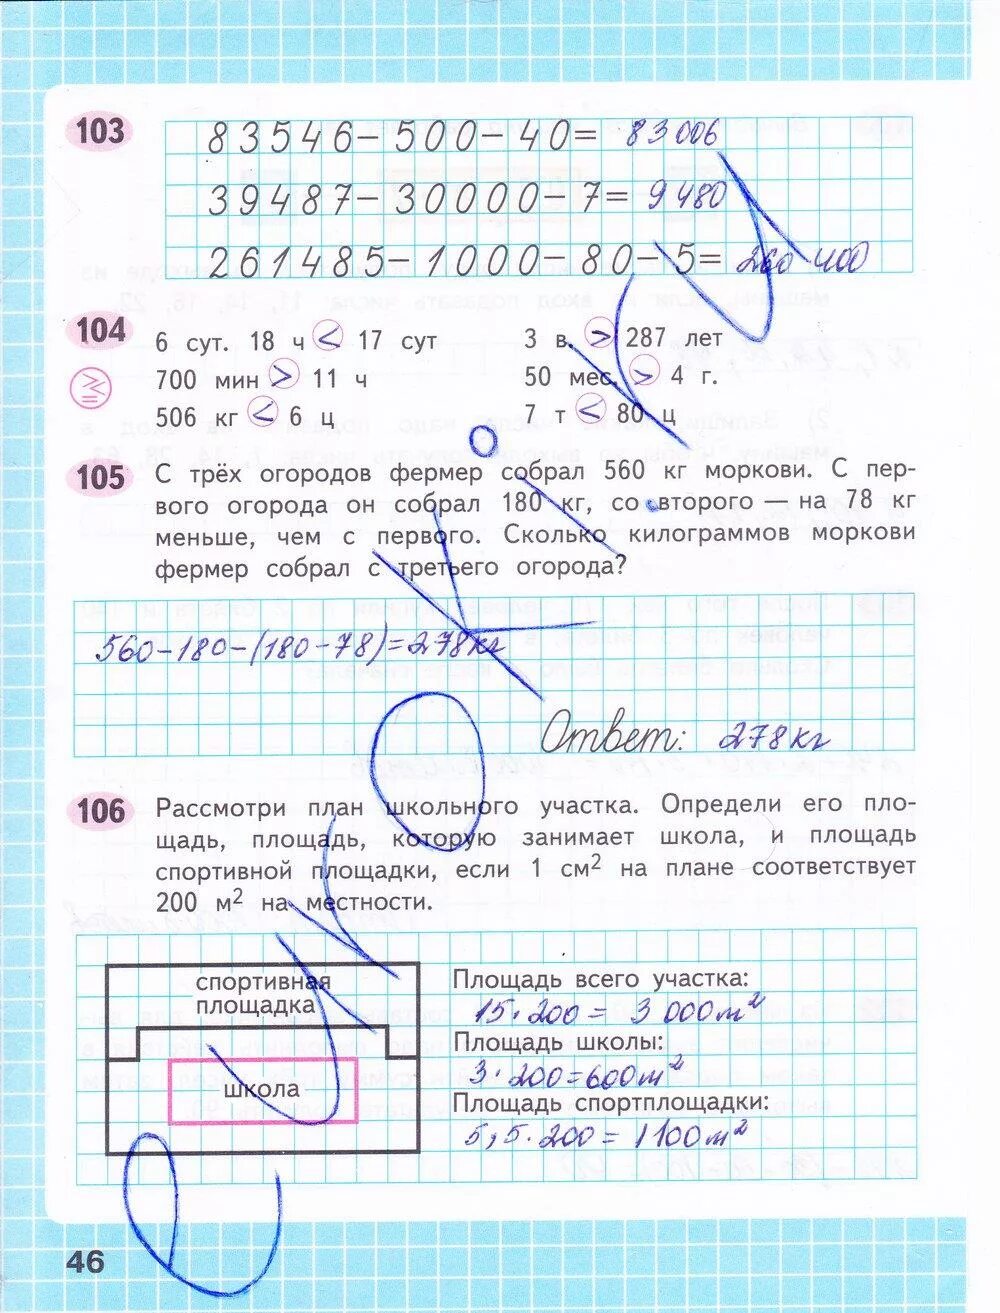 103
83546-500-40= 83 006
39487-30000-7= 9 480
261485-1000-80-5= 260 400
104
6 сут. 18 ч < 17 сут
3 в. > 287 лет
700 мин > 11 ч
50 мес. > 4 г.
506 кг < 6 ц
7 т < 80 ц
105
С трёх огородов фермер собрал 560 кг моркови. С пер-
вого огорода он собрал 180 кг, со второго — на 78 кг
меньше, чем с первого. Сколько килограммов моркови
фермер собрал с третьего огорода?
560-180-(180-78)=278кг
Ответ: 278кг
106
Рассмотри план школьного участка. Определи его пло-
щадь, площадь, которую занимает школа, и площадь
спортивной площадки, если 1 см² на плане соответствует
200 м² на местности.
спортивная
площадка
школа
Площадь всего участка:
15·200 = 3 000м²
Площадь школы:
3·200=600м²
Площадь спортплощадки:
5,5·200 = 1100м²
46